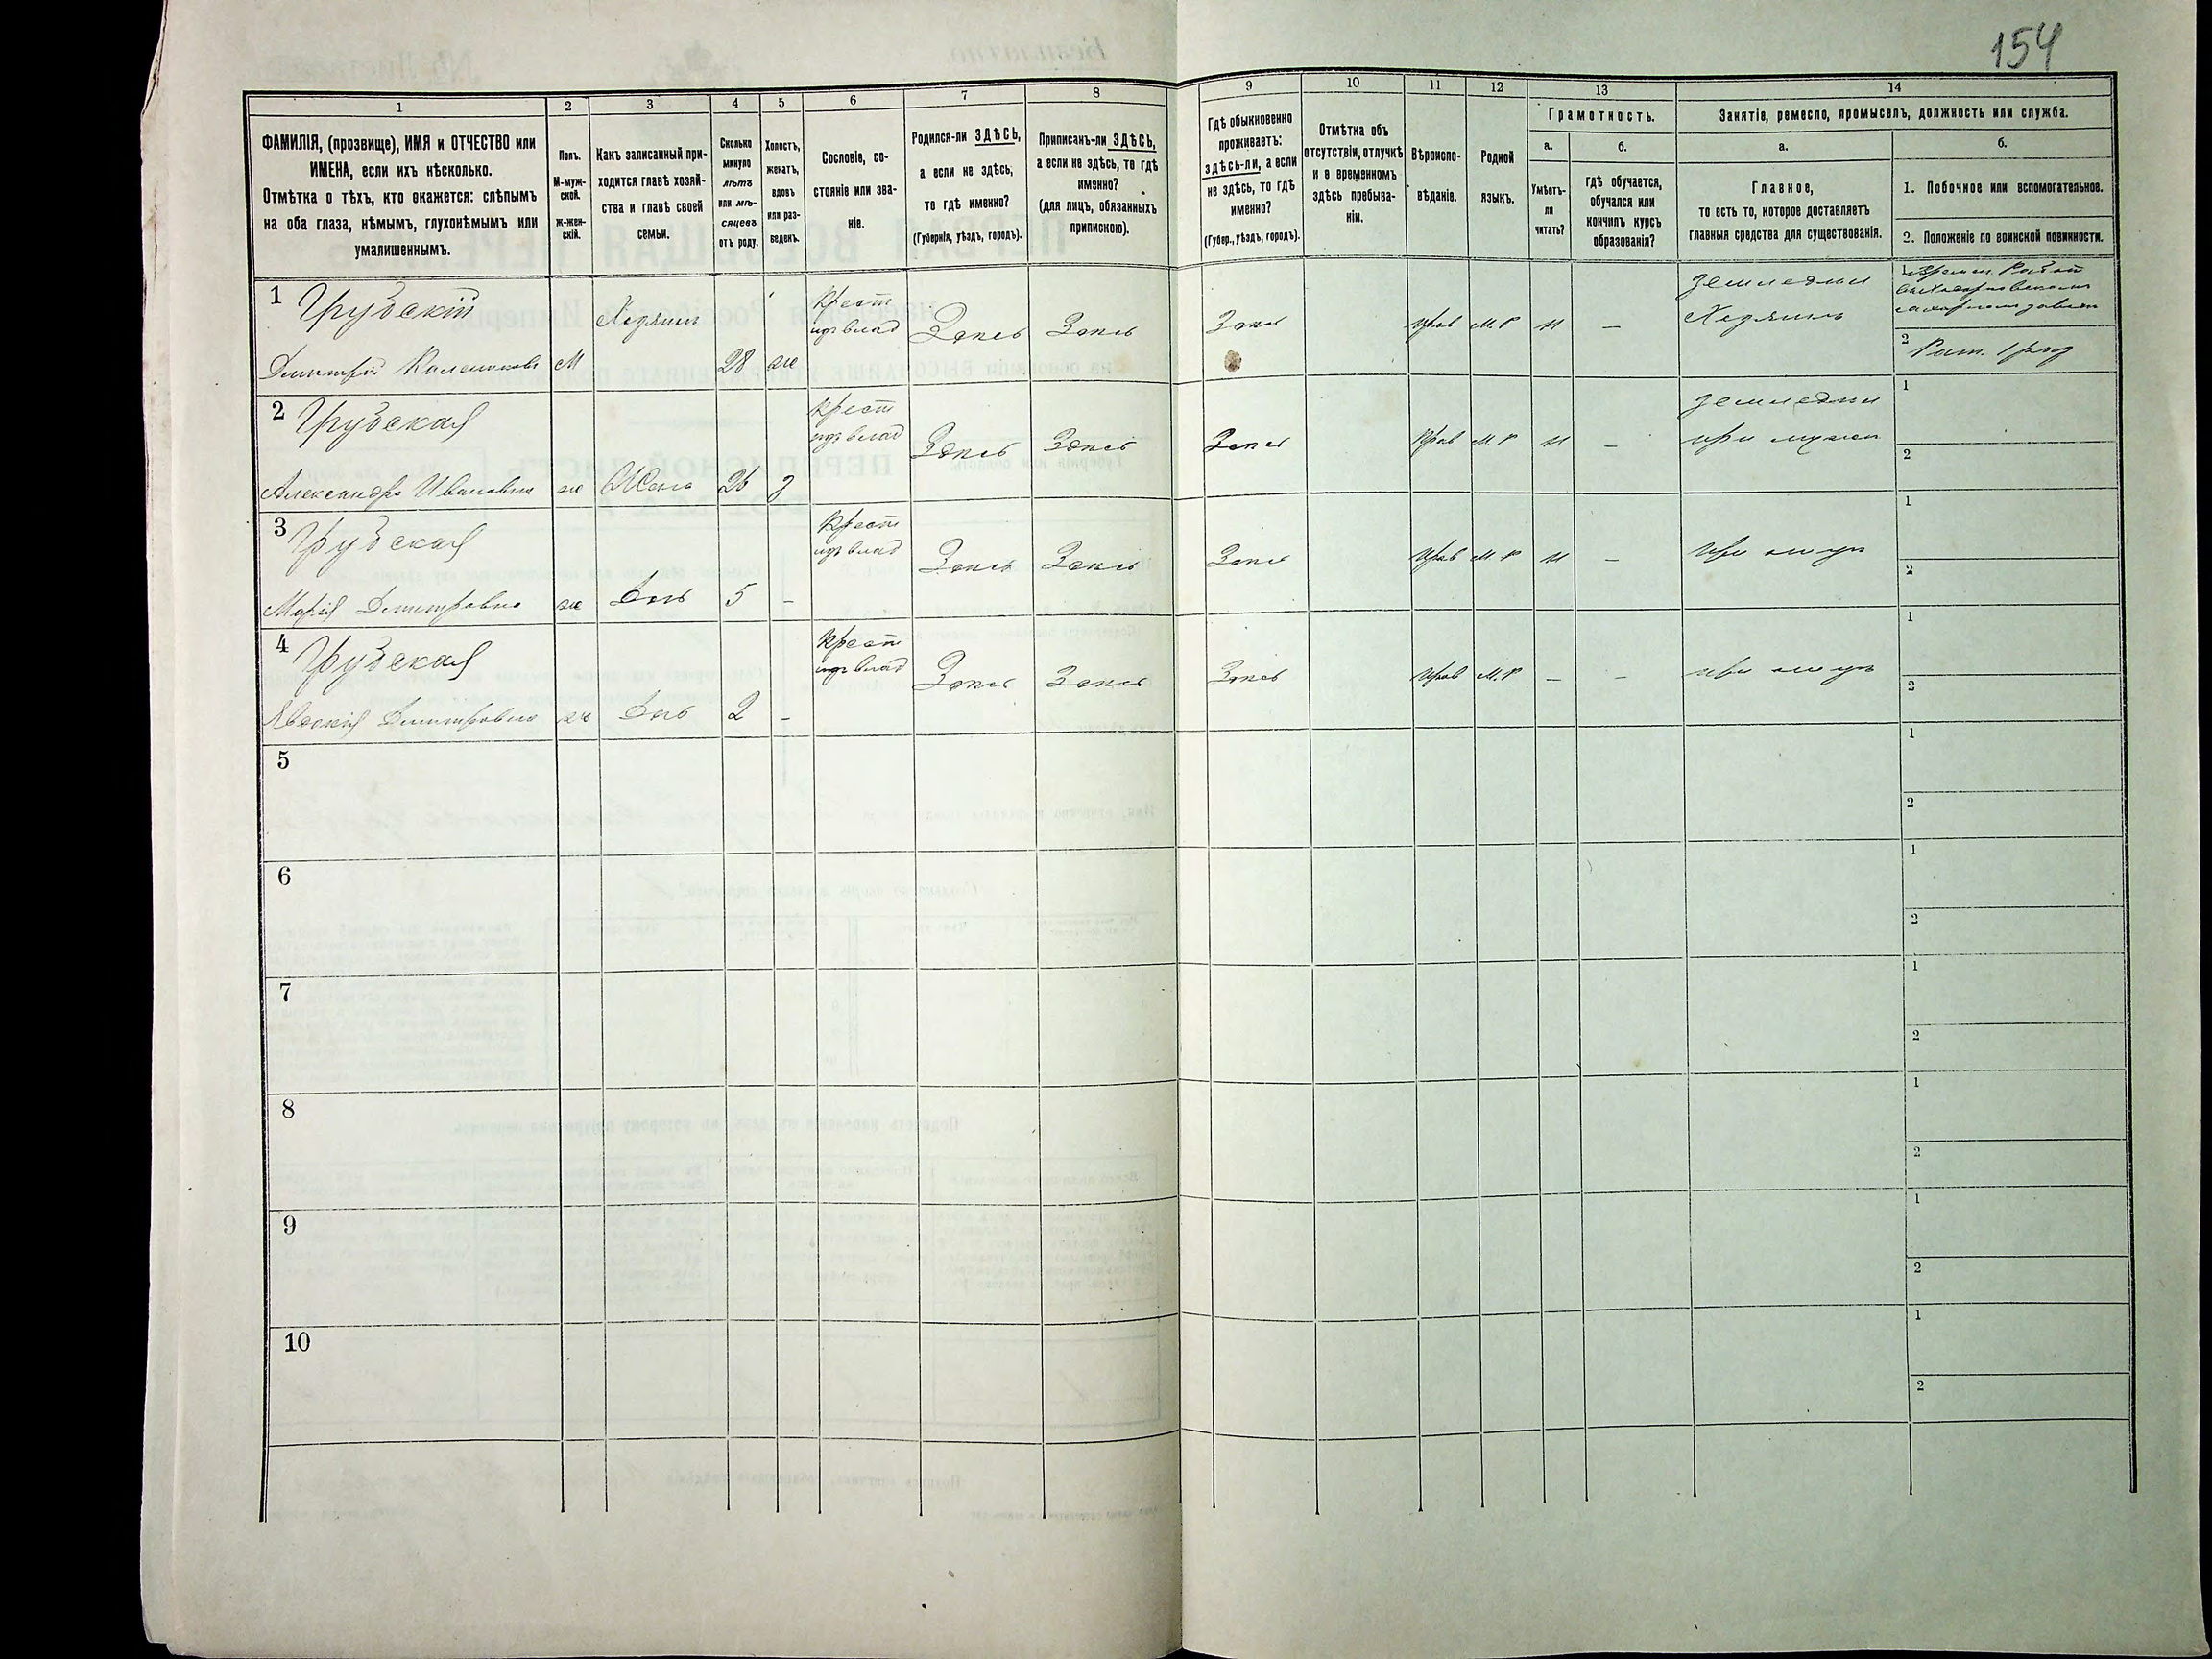 154
1
2
3
4
5
6
7
8
9
10
11
12
13
14
ФАМИЛІЯ, (прозвище), ИМЯ и ОТЧЕСТВО или
ИМЕНА, если ихъ нѣсколько.
Отмѣтка о тѣхъ, кто окажется: слѣпымъ
на оба глаза, нѣмымъ, глухонѣмымъ или
умалишеннымъ.
Полъ.
М-муж-
ской.
Ж-жен-
скій.
Какъ записанный при-
ходится главѣ хозяй-
ства и главѣ своей
семьи.
Сколько
минуло
лѣтъ
или мѣ-
сяцевъ
отъ роду.
Холостъ,
женатъ,
вдовъ
или раз-
веденъ.
Сословіе, со-
стояніе или зва-
ніе.
Родился-ли ЗДѢСЬ,
а если не здѣсь,
то гдѣ именно?
(Губернія, уѣздъ, городъ).
Приписанъ-ли ЗДѢСЬ,
а если не здѣсь, то гдѣ
именно?
(для лицъ, обязанныхъ
припискою).
Гдѣ обыкновенно
проживаетъ:
здѣсь-ли, а если
не здѣсь, то гдѣ
именно?
(Губер., уѣздъ, городъ).
Отмѣтка объ
отсутствіи, отлучкѣ
и о временномъ
здѣсь пребыва-
ніи.
Вѣроиспо-
вѣданіе.
Родной
языкъ.
Грамотность.
а.
Умѣетъ-
ли
читать?
б.
гдѣ обучается,
обучался или
кончилъ курсъ
образованія?
Занятіе, ремесло, промыселъ, должность или служба.
а.
Главное,
то есть то, которое доставляетъ
главныя средства для существованія.
б.
1. Побочное или вспомогательное.
2. Положеніе по воинской повинности.
1
Дмитрій
М
Хозяин
28
ж
Крест
из влад
Здесь Здесь Здесь
Прав М.Р н —
Земледел
Хозяин
1
2
2
Александра Ивановна
ж Жена 26 з
Крест
из влад
Здесь Здесь Здесь
Прав М.Р н —
Земледел
при муже
1
2
3
Марія Дмитровна
ж Дочь 5 —
Крест
из влад
Здесь Здесь Здесь
Прав М.Р н —
при отце
1
2
4
Дмитровна
ж Дочь 2 —
Крест
из влад
Здесь Здесь Здесь
Прав М.Р — —
при отце
1
2
5
1
2
6
1
2
7
1
2
8
1
2
9
1
2
10
1
2